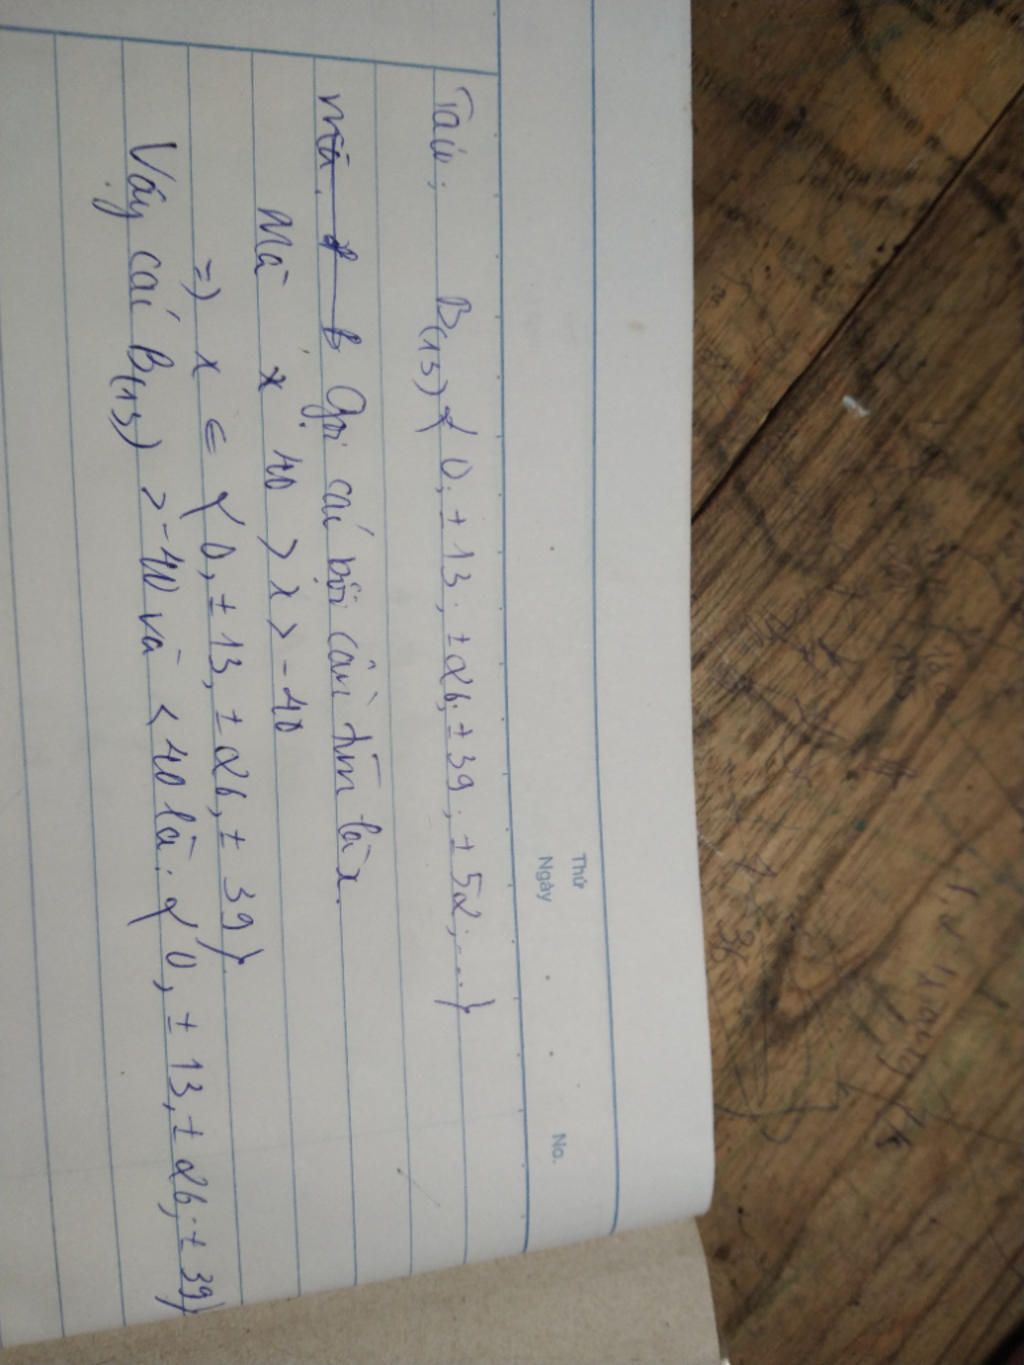 Thứ
Ngày No.
B(13) { 0; ±13; ±26; ±39; ±52; ...}
Gọi các bội cần tìm là x.
Mà x 40 > x > -40
=) x ∈ { 0, ±13, ±26, ±39}
Vậy các B(13) > -40 và < 40 là: { 0, ±13, ±26, ±39}